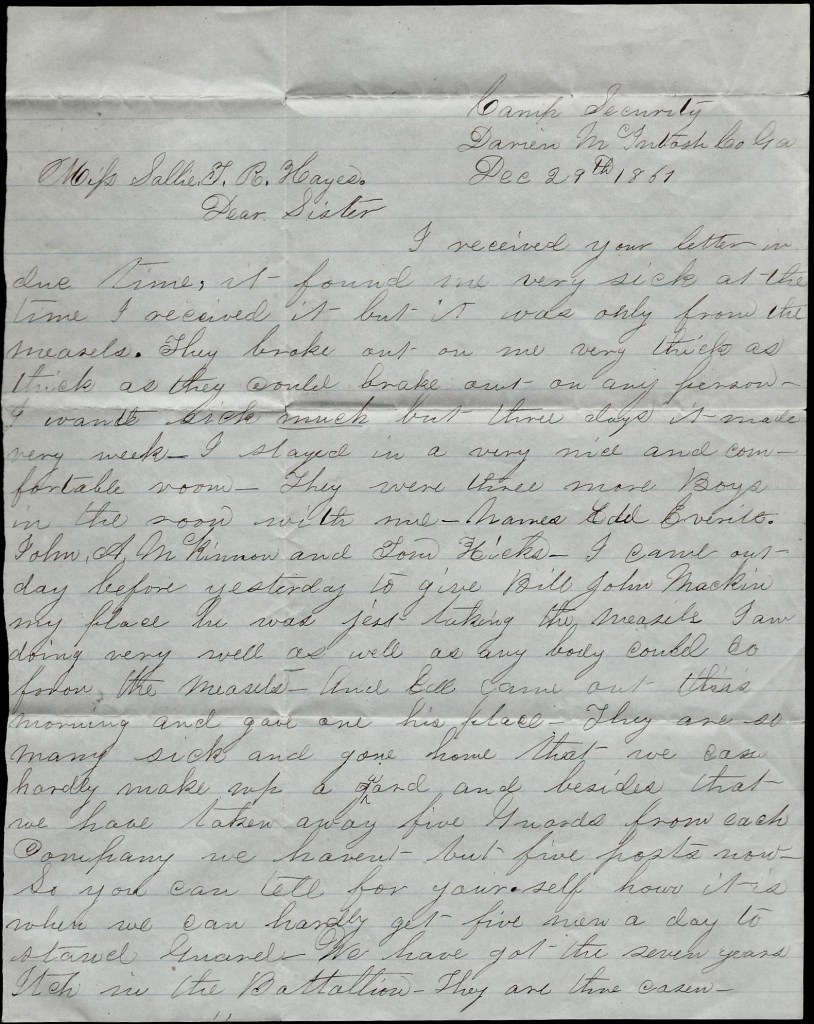 Camp Security
Darien McIntosh Co Ga
Dec 29th 1861
Miss Sallie T. R. Hayes.
Dear Sister
I received your letter in
due time, it found me very sick at the
time I received it but it was only from the
measels. They broke out on me very thick as
thick as they could brake out on any person—
I wants sick much but three days it made
very week— I stayed in a very nice and com—
fortable room— They were three more Boys
in the room with me— Names Edd Everitt.
John, A, McKinnon and Tom Hicks— I came out
day before yesterday to give Bill John Mackin
my place he was jest taking the measels I am
doing very well as well as any body could do
from the measels— And Edd came out this
morning and gave one his place— They are so
many sick and gone home that we can
hardly make up a gard and besides that
we have taken away five Guards from each
Company we havent but five posts now—
So you can tell for your self how it is
when we can hardly get five men a day to
stand Guard— We have got the seven years
Itch in the Battallion— They are three casen—